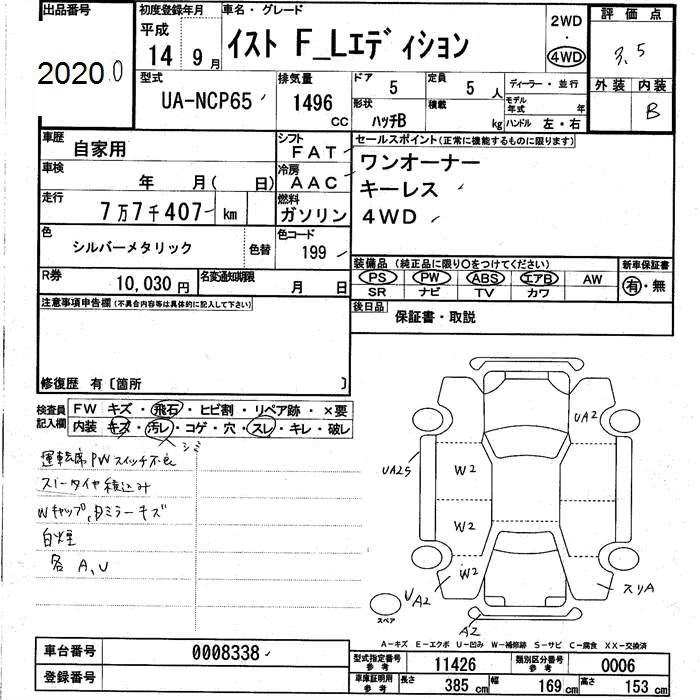 出品番号 初度登録年月 車名・グレード 2WD 評価点
平成 イスト F_Lエディション ・ 3.5
20200 14 9月 4WD
型式 排気量 ドア 5 定員 5人 ディーラー・並行 外装 内装
UA-NCP65 1496cc 形状 ハッチB 積載 kg モデル年式 年 B
ハンドル 左・右
車歴 自家用 シフト FAT セールスポイント(正常に機能するものに限ります)
車検 年 月( 日) 冷房 AAC ワンオーナー
走行 7万7千407 km 燃料 ガソリン キーレス
4WD
色 シルバーメタリック 色替 色コード 199
装備品(純正品に限り○をつけてください) 新車保証書
R券 10,030円 名変通知期限 月 日 PS PW ABS エアB AW 有・無
SR ナビ TV カワ
注意事項申告欄(不具合内容等は具体的に記入して下さい) 後日品 保証書・取説
修復歴 有[箇所 ]
検査員 FW キズ・飛石・ヒビ割・リペア跡・×要
記入欄 内装 キズ・汚レ・コゲ・穴・スレ・キレ・破レ
シミ
運転席PWスイッチ不良
スノータイヤ積込み
Wキャップ、Dミラーキズ
白煙
各 A、U
UA2
UA2S
W2
W2
W2
UA2
スリA
A2
スペア
A-キズ E-エクボ U-凹み W-補修跡 S-サビ C-腐食 XX-交換済
車台番号 0008338 型式指定番号 参考 11426 類別区分番号 参考 0006
登録番号 車庫証明用 参考 長さ 385cm 幅 169cm 高さ 153cm